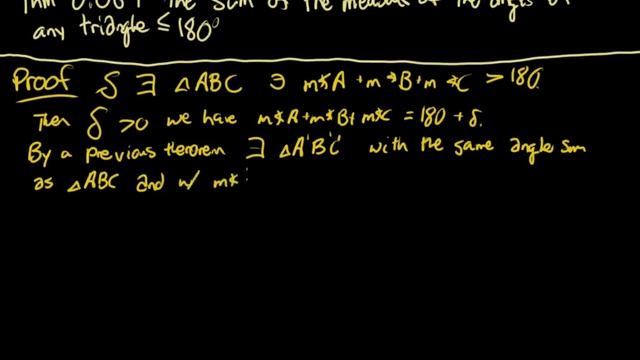 The sum of the measures of the angles of
any triangle ≤ 180°
Proof S ∃ △ABC ∋ m∡A + m∡B + m∡C > 180.
Then δ > 0 we have m∡A + m∡B + m∡C = 180 + δ.
By a previous theorem ∃ △A'B'C' with the same angle sum
as △ABC and w/ m∡